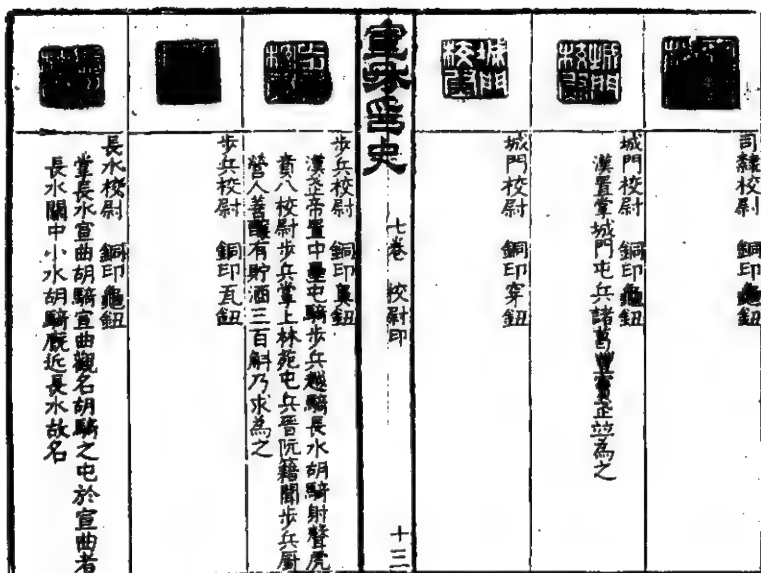 司隸校尉 銅印龜鈕
城門校尉 銅印龜鈕
漢置掌城門屯兵諸葛豐竇武竝為之
城門校尉 銅印穿鈕
城門校尉
城門校尉
宣和印史
七卷 校尉印
十三
步兵校尉 銅印鼻鈕
漢武帝置中壘屯騎步兵越騎長水胡騎射聲虎
賁八校尉步兵掌上林苑屯兵晉阮籍聞步兵廚
營人善釀有貯酒三百斛乃求為之
步兵校尉 銅印瓦鈕
長水校尉 銅印龜鈕
掌長水宣曲胡騎宣曲觀名胡騎之屯於宣曲者
長水關中小水胡騎廄近長水故名